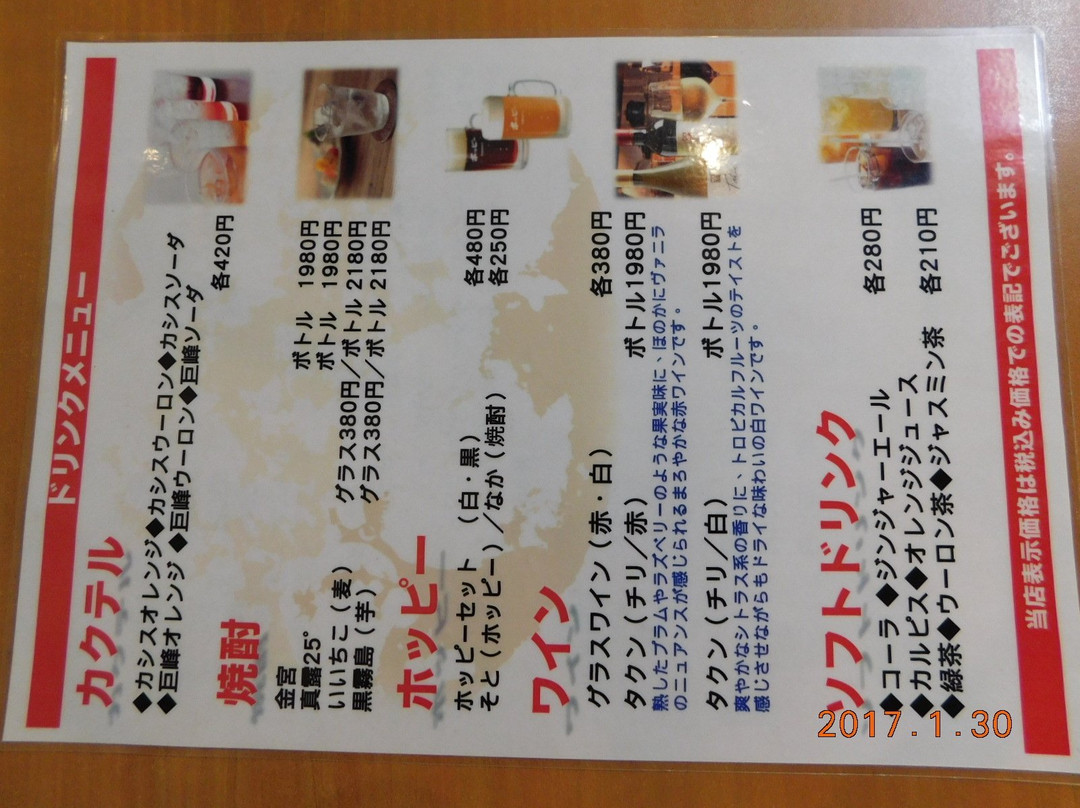 ドリンクメニュー
カクテル
◆カシスオレンジ◆カシスウーロン◆カシスソーダ
◆巨峰オレンジ ◆巨峰ウーロン◆巨峰ソーダ
各420円
焼酎
金宮 ボトル 1980円
真露25° ボトル 1980円
いいちこ（麦） グラス380円／ボトル 2180円
黒霧島（芋） グラス380円／ボトル 2180円
ホッピー
ホッピーセット （白・黒） 各480円
そと（ホッピー）／なか（焼酎） 各250円
ワイン
グラスワイン（赤・白） 各380円
タクン（チリ／赤） ボトル1980円
熟したプラムやラズベリーのような果実味に、ほのかにヴァニラ
のニュアンスが感じられるまろやかな赤ワインです。
タクン（チリ／白） ボトル1980円
爽やかなシトラス系の香りに、トロピカルフルーツのテイストを
感じさせながらもドライな味わいの白ワインです。
ソフトドリンク
◆コーラ ◆ジンジャーエール 各280円
◆カルピス◆オレンジジュース
◆緑茶◆ウーロン茶◆ジャスミン茶 各210円
当店表示価格は税込み価格での表記でございます。
2017. 1. 30